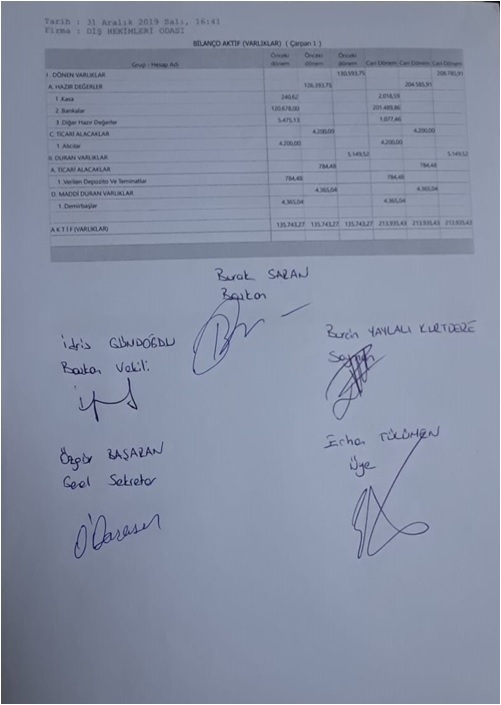 Tarih : 31 Aralık 2019 Salı, 16:41
Firma : DİŞ HEKİMLERİ ODASI
BİLANÇO AKTİF (VARLIKLAR) ( Çarpan 1 )
Grup / Hesap Adı Önceki dönem Önceki dönem Önceki dönem Cari Dönem Cari Dönem Cari Dönem
I. DÖNEN VARLIKLAR 130.593,75 208.785,91
A. HAZIR DEĞERLER 126.393,75 204.585,91
1. Kasa 240,62 2.018,59
2. Bankalar 120.678,00 201.489,86
3. Diğer Hazır Değerler 5.475,13 1.077,46
C. TİCARİ ALACAKLAR 4.200,00 4.200,00
1. Alıcılar 4.200,00 4.200,00
II. DURAN VARLIKLAR 5.149,52 5.149,52
A. TİCARİ ALACAKLAR 784,48 784,48
1. Verilen Depozito Ve Teminatlar 784,48 784,48
D. MADDİ DURAN VARLIKLAR 4.365,04 4.365,04
1. Demirbaşlar 4.365,04 4.365,04
A K T İ F (VARLIKLAR) 135.743,27 135.743,27 135.743,27 213.935,43 213.935,43 213.935,43
Burak SARAN
Başkan
İdris GÜNDOĞDU
Başkan Vekili
Burcin YAYLALI KURTDERE
Sayman
Özgür BAŞARAN
Genel Sekreter
Erhan TÜLÜMEN
Üye